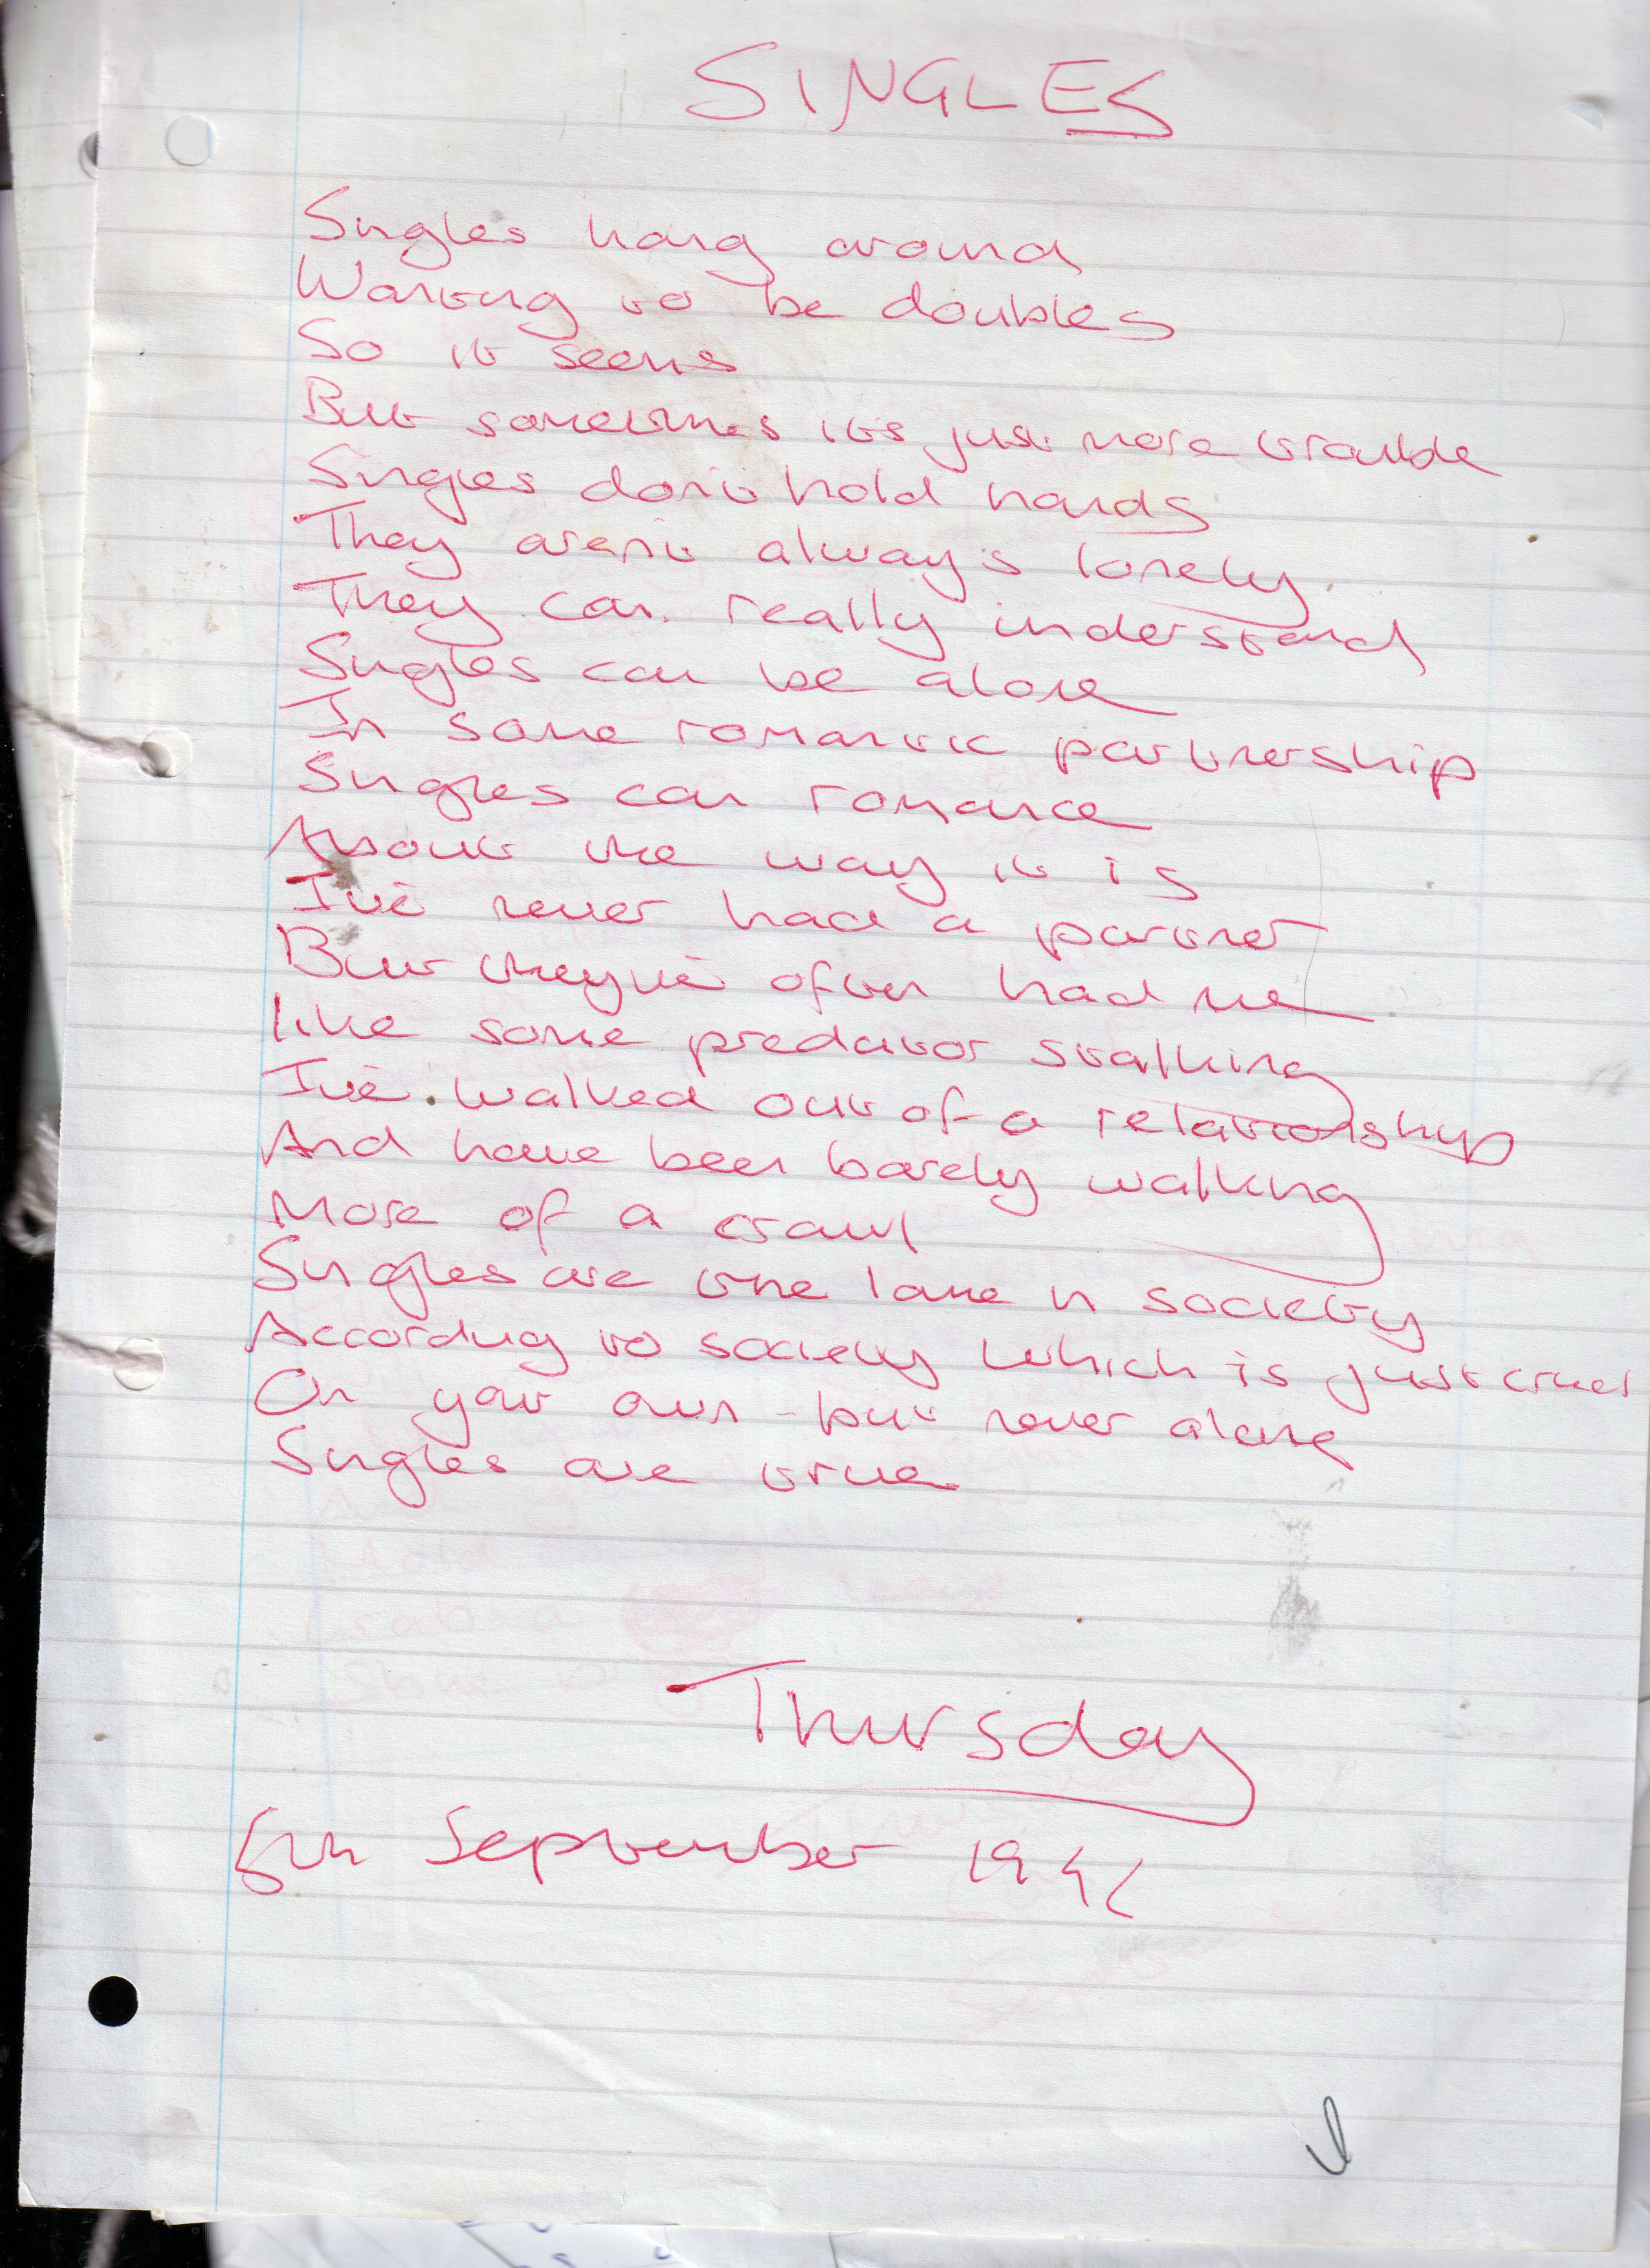 SINGLES
Singles hang around
Wanting to be doubles
So it seems
But sometimes its just more trouble
Singles don't hold hands
They aren't always lonely
They can really understand
Singles can be alone
In some romantic partnership
Singles can romance
About the way it is
I've never had a partner
But they've often had me
like some predator stalking
I've walked out of a relationship
And have been barely walking
More of a crawl
Singles are the lame in society
According to society which is just cruel
On your own - but never alone
Singles are true
Thursday
5th September 1996